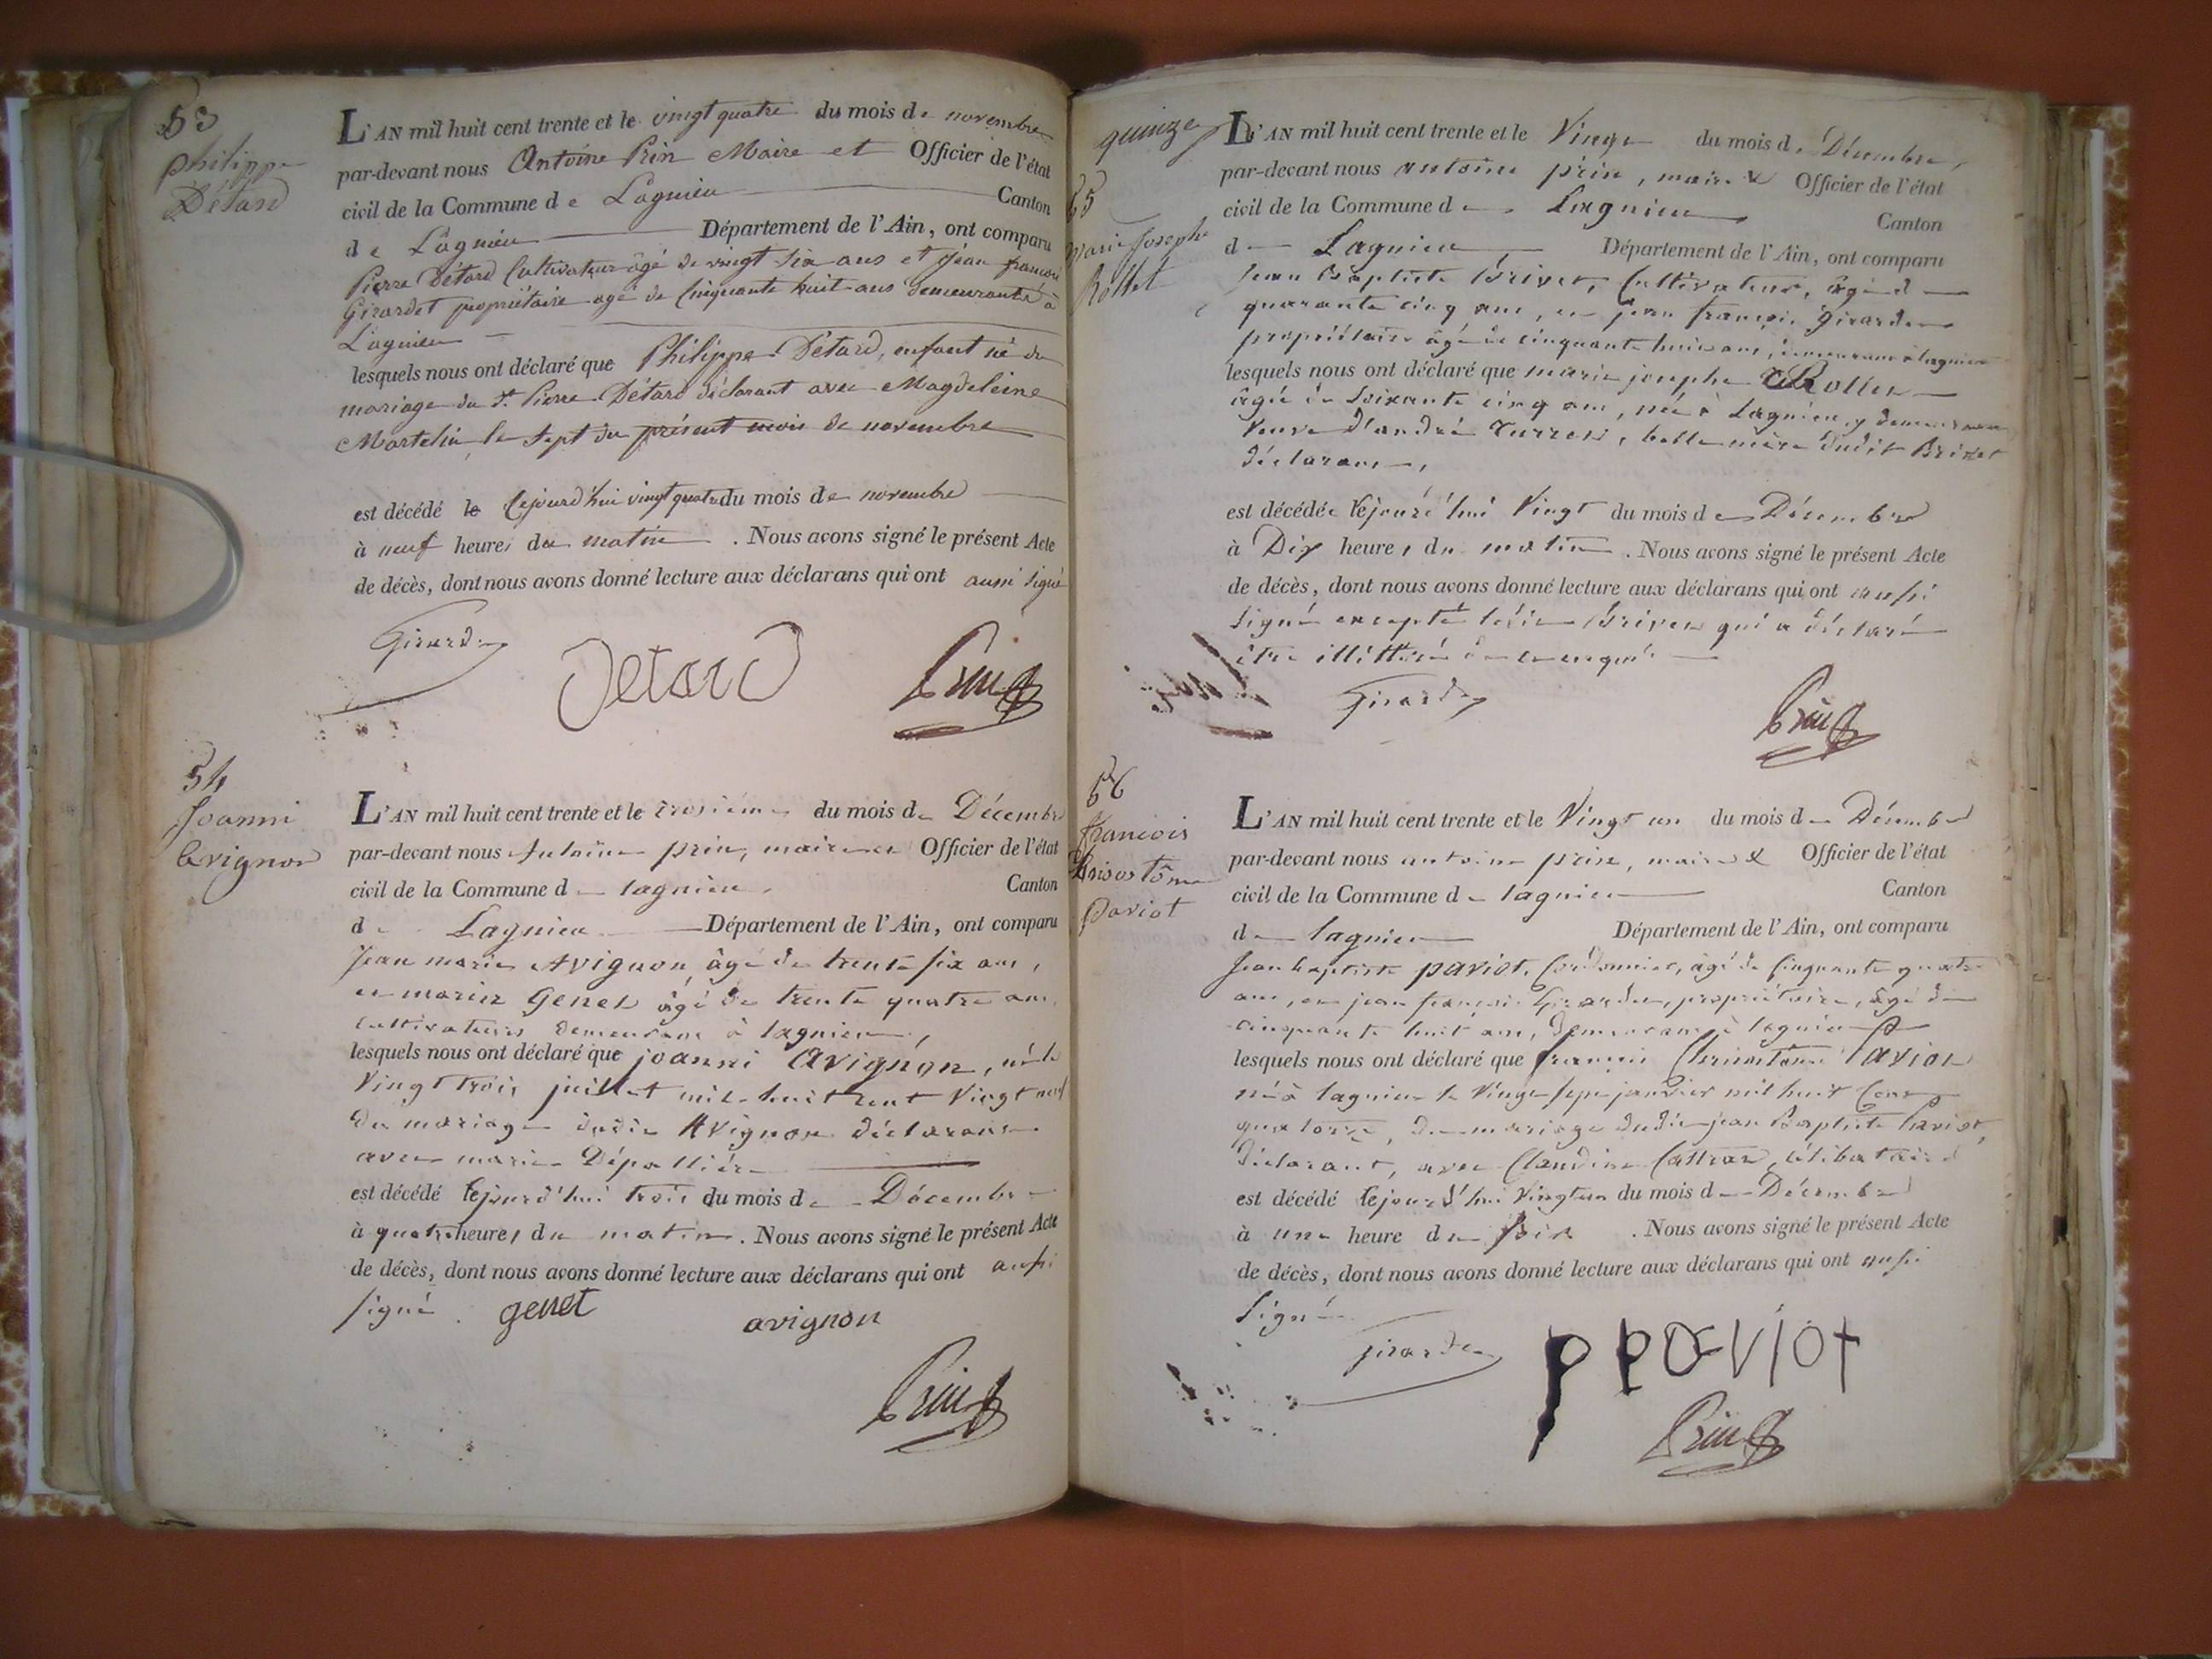 53
Philippe
Détard
L'AN mil huit cent trente et le vingt quatre du mois de novembre
par-devant nous Antoine Prin Maire et Officier de l'état
civil de la Commune de Lagnieu Canton
de Lagnieu Département de l'Ain, ont comparu
Pierre Détard Cultivateur âgé de vingt six ans et Jean françois
Girardet propriétaire agé de Cinquante huit ans demeurants à
Lagnieu
lesquels nous ont déclaré que Philippe Détard, enfant né du
mariage du St. Pierre Détard déclarant avec Magdeleine
Martelin, le sept du présent mois de novembre
est décédé le Cejourd'hui vingt quatre du mois de novembre
à neuf heures du matin. Nous avons signé le présent Acte
de décès, dont nous avons donné lecture aux déclarans qui ont aussi signé
Girardet
Detard
Prin
54
Joanni
Avignon
L'AN mil huit cent trente et le troisième du mois de Décembre
par-devant nous Antoine prin, maire et Officier de l'état
civil de la Commune de lagnieu Canton
de Lagnieu Département de l'Ain, ont comparu
Jean marie Avignon âgé de trente six ans,
et marin Genet âgé de trente quatre ans,
cultivateurs demeurans à lagnieu,
lesquels nous ont déclaré que joanni Avignon, né le
Vingt trois juillet mil huit cent Vingt neuf
du mariage dudit Avignon déclarant
avec marie Dépallière
est décédé Cejourd'hui trois du mois de Décembre
à quatre heures du matin. Nous avons signé le présent Acte
de décès, dont nous avons donné lecture aux déclarans qui ont aussi
signé. genet avignon
Prin
quinze
55
Marie Josephe
Rollet
L'AN mil huit cent trente et le Vingt du mois de Décembre,
par-devant nous antoine prin, maire & Officier de l'état
civil de la Commune de Lagnieu Canton
de Lagnieu Département de l'Ain, ont comparu
Jean Baptiste Brivet, Cultivateur, âgé de
quarante cinq ans, et jean françois Girardet
propriétaire âgé de cinquante huit ans, demeurans à lagnieu
lesquels nous ont déclaré que marie josephe Rollet
âgée de soixante cinq ans, née à Lagnieu y demeurant
Veuve d'andré, belle mère dudit Brivet
déclarant,
est décédée Cejourd'hui Vingt du mois de Décembre
à Dix heures du matin. Nous avons signé le présent Acte
de décès, dont nous avons donné lecture aux déclarans qui ont aussi
signé excepté ledit Brivet qui a déclaré
être illittéré de ce enquis
Girardet
Prin
56
françois
Crisostôme
Paviot
L'AN mil huit cent trente et le Vingt un du mois de Décembre
par-devant nous antoine prin, maire & Officier de l'état
civil de la Commune de lagnieu Canton
de lagnieu Département de l'Ain, ont comparu
Jean baptiste paviot, Cordonnier, âgé de Cinquante quatre
ans, et jean françois Girardet, propriétaire, âgé de
cinquante huit ans, demeurans à lagnieu
lesquels nous ont déclaré que françois Chrisostôme Paviot
né à lagnieu le Vingt sept janvier mil huit Cent
quatorze, du mariage dudit jean Baptiste Paviot,
déclarant, avec Claudine, célibataire
est décédé Cejourd'hui Vingt un du mois de Décembre
à une heure du soir. Nous avons signé le présent Acte
de décès, dont nous avons donné lecture aux déclarans qui ont aussi
signé
girardet
p paviot
Prin